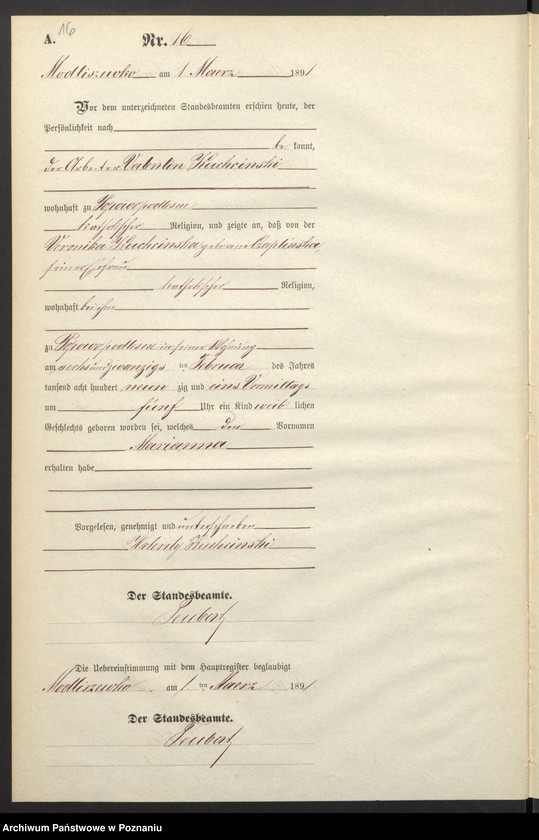 16
A. Nr. 16
Modliszewko am 1 Maerz 1891
Vor dem unterzeichneten Standesbeamten erschien heute, der
Persönlichkeit nach
be kannt,
der Arbeiter Valentin Kuchcinski
wohnhaft zu
katholischer Religion, und zeigte an, daß von der
Veronika Kuchcinska geborene Czaplinska
seiner Ehefrau
katholischer Religion,
wohnhaft bei ihm
zu in seiner Wohnung
am sechsundzwanzigs ten Februar des Jahres
tausend acht hundert neun zig und eins Vormittags
um fünf Uhr ein Kind weib lichen
Geschlechts geboren worden sei, welches den Vornamen
Marianna
erhalten habe
Vorgelesen, genehmigt und unterschrieben
Walenty Kuchcinski
Der Standesbeamte.
Die Uebereinstimmung mit dem Hauptregister beglaubigt
Modliszewko am 1 ten Maerz 1891
Der Standesbeamte.
Archiwum Państwowe w Poznaniu